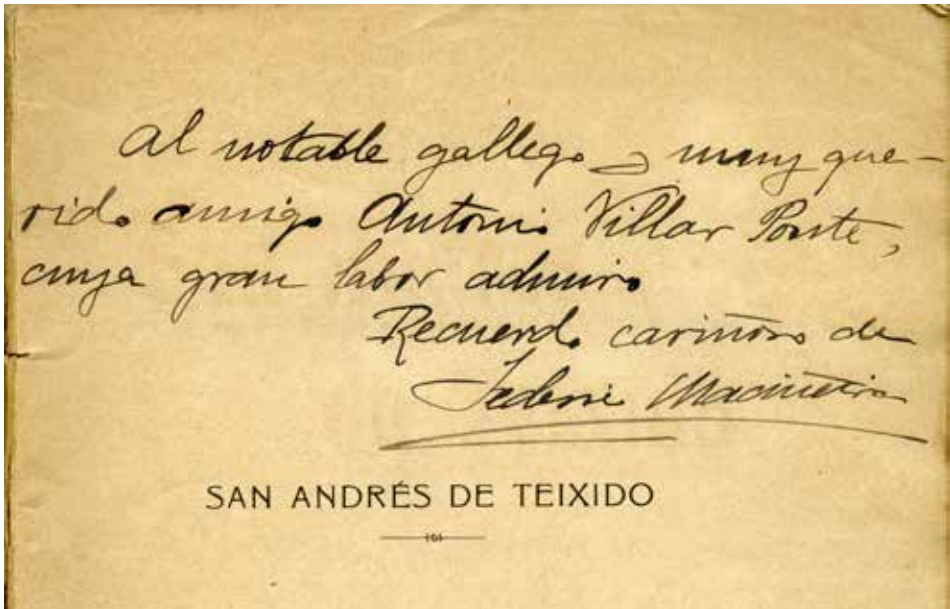 Al notable gallego y muy que-
rido amigo Antonio Villar Ponte,
cuya gran labor admiro
Recuerdo cariñoso de
Federico Maciñeira
SAN ANDRÉS DE TEIXIDO